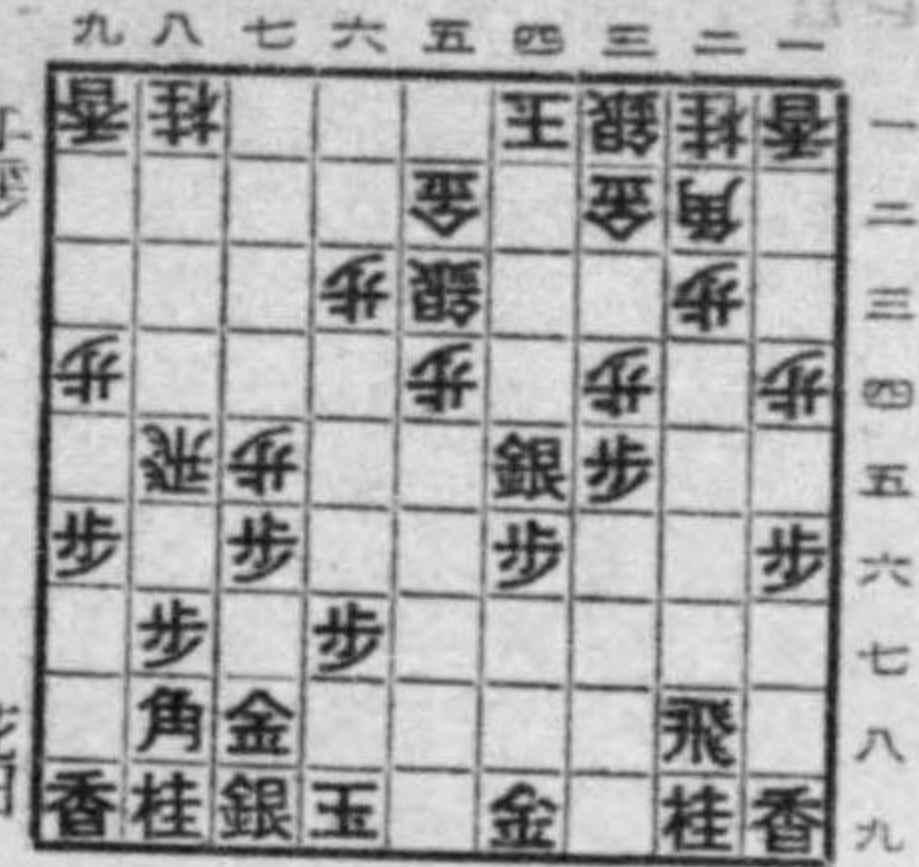 九八七六五四三二一
香桂玉銀桂香一
金金角二
歩銀歩三
歩歩歩歩四
飛歩銀歩五
歩歩歩歩六
歩歩七
角金飛八
香桂銀玉金桂香九